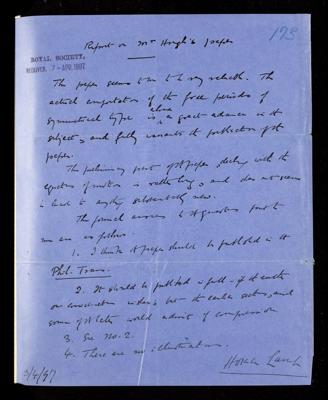 173
Report on Mr Hough's paper
ROYAL SOCIETY,
RECEIVED, 7-APR.1897
This paper seems to me to be very valuable. The
actual computation of the free periods of
symmetrical type alone is a great advance in the
subject, and fully warrants the publication of the
paper.
The preliminary part of the paper dealing with the
equations of motion is rather long, and does not seem
to lead to anything substantially new.
The formal answers to the questions put to
me are as follows
1. I think the paper should be published in the
Phil. Trans.
2. It should be published in full - if the author
on consideration but the earlier sections, and
some of the later would admit of compression
3. See No. 2.
4. There are no illustrations.
Horace Lamb
3/4/97